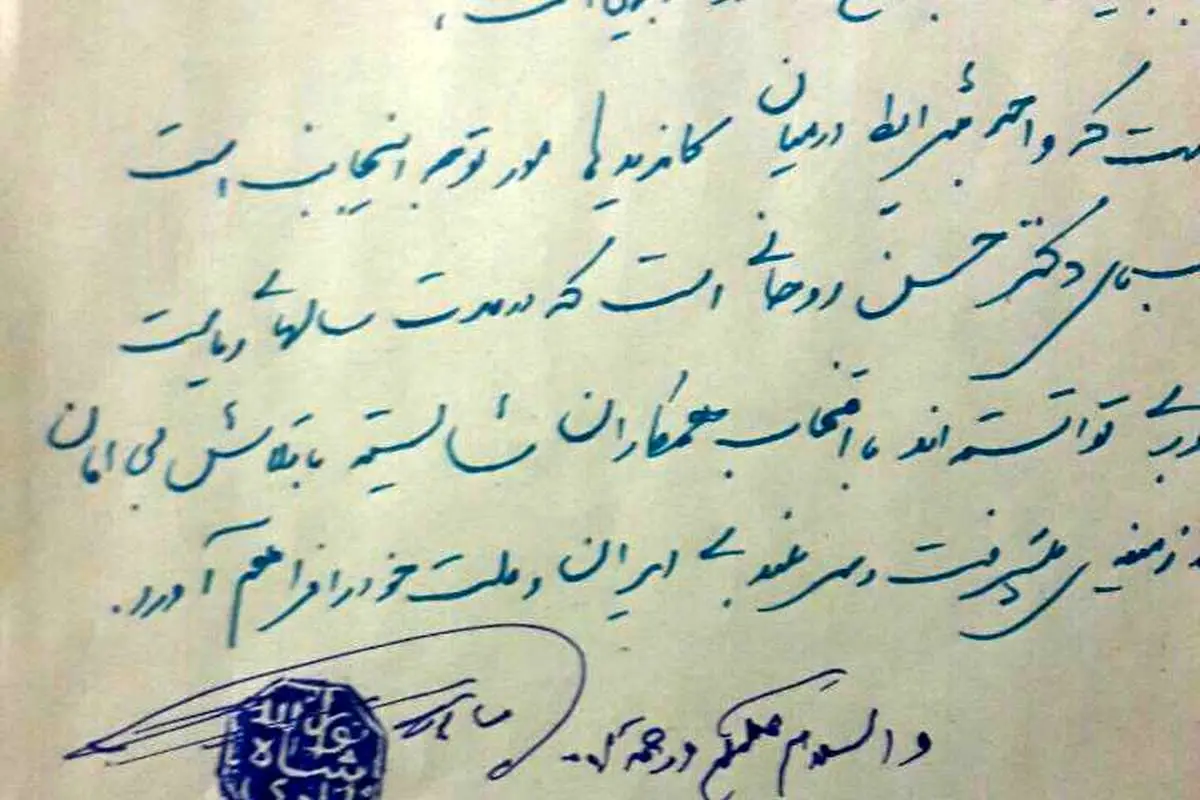 که واجد شرایط در میان کاندیدها مورد توجه اینجانب است
دکتر حسن روحانی است که در مدت سالهای ریاست
توانسته اند با انتخاب همکاران شایسته با تلاش بی امان
زمینه ی پیشرفت و سربلندی ایران و ملت خود را فراهم آورد.
والسلام علیکم و رحمة ا...